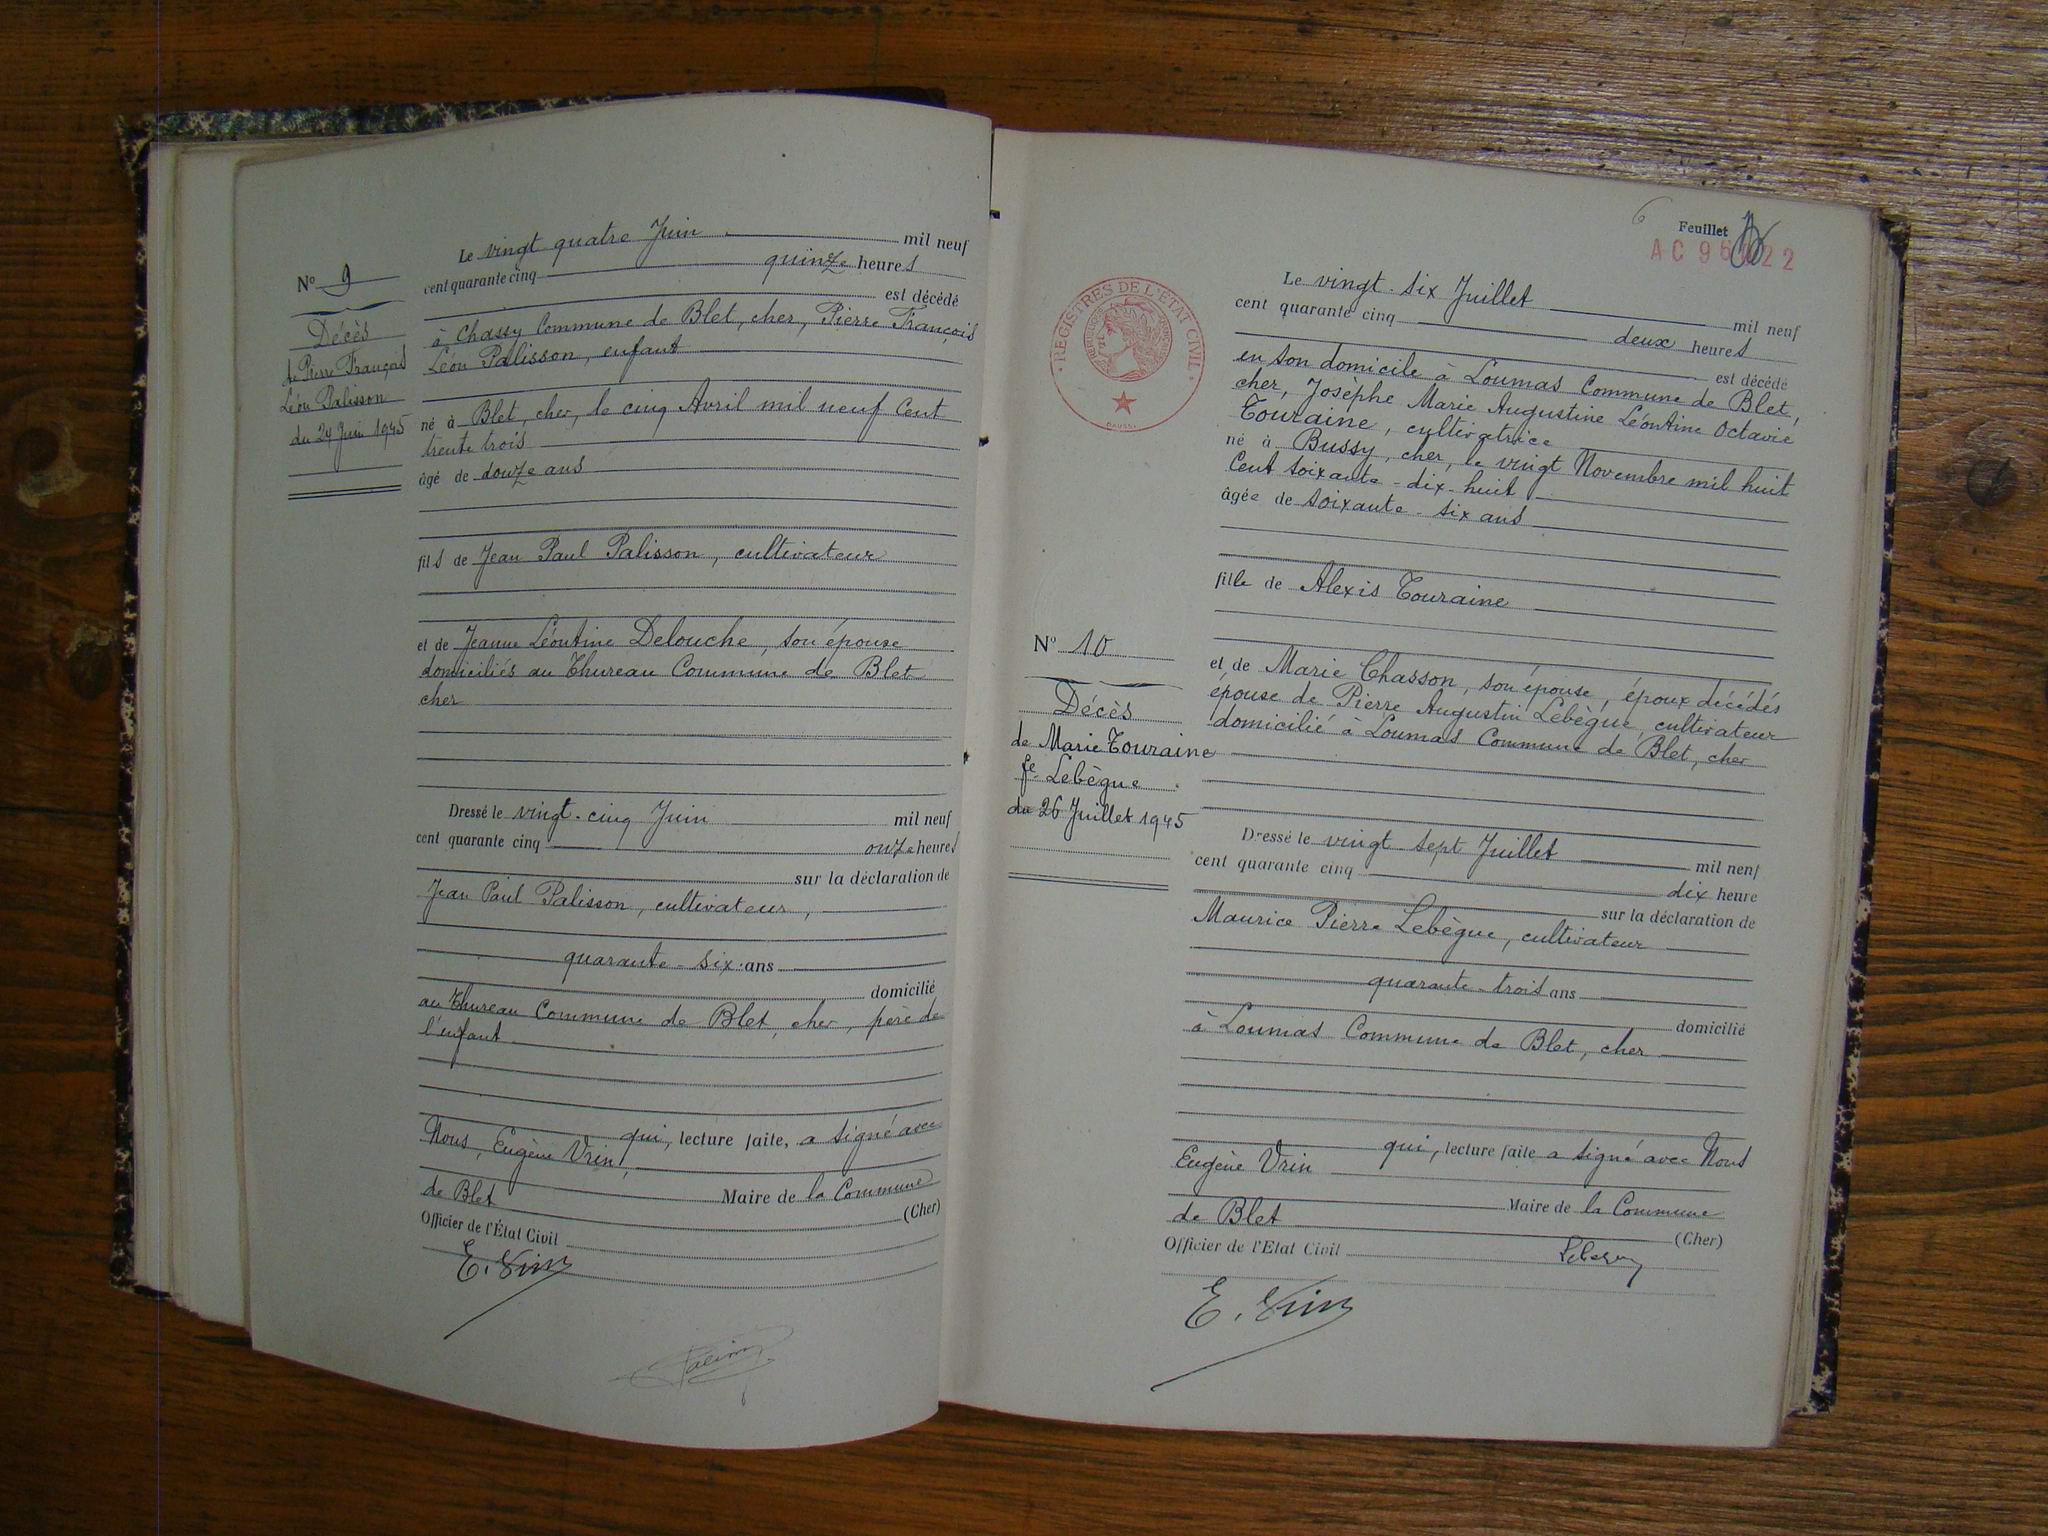 Nº 9
Décès
de Pierre François
Léon Palisson
du 24 Juin 1945
Le vingt quatre Juin mil neuf
cent quarante cinq quinze heures
est décédé
à Chassy Commune de Blet, cher, Pierre François
Léon Palisson, enfant
né à Blet, cher, le cinq Avril mil neuf Cent
trente trois
âgé de douze ans
fils de Jean Paul Palisson, cultivateur
et de Jeanne Léontine Delouche, son épouse
domiciliés au Thureau Commune de Blet
cher
Dressé le vingt-cinq Juin mil neuf
cent quarante cinq onze heures
sur la déclaration de
Jean Paul Palisson, cultivateur,
quarante-six ans
domicilié
au Thureau Commune de Blet, cher, père de
l'enfant
qui, lecture faite, a signé avec
Nous, Eugène Vrin,
Maire de la Commune
de Blet (Cher)
Officier de l'État Civil
E. Vrin
Feuillet
AC 95 22
REGISTRES DE L'ETAT CIVIL
Nº 10
Décès
de Marie Touraine
fe Lebègue
du 26 Juillet 1945
Le vingt-six Juillet mil neuf
cent quarante cinq deux heures
est décédé
en son domicile à Loumas Commune de Blet,
cher, Josèphe Marie Augustine Léontine Octavie
Touraine, cultivatrice
né à Bussy, cher, le vingt Novembre mil huit
Cent soixante-dix-huit
âgée de soixante-six ans
fille de Alexis Touraine
et de Marie Chasson, son épouse, époux décédés
épouse de Pierre Augustin Lebègue, cultivateur
domicilié à Loumas Commune de Blet, cher
Dressé le vingt sept Juillet mil neuf
cent quarante cinq dix heure
sur la déclaration de
Maurice Pierre Lebègue, cultivateur
quarante-trois ans
domicilié
à Loumas Commune de Blet, cher
qui, lecture faite a signé avec Nous
Eugène Vrin
Maire de la Commune
de Blet (Cher)
Officier de l'Etat Civil
E. Vrin